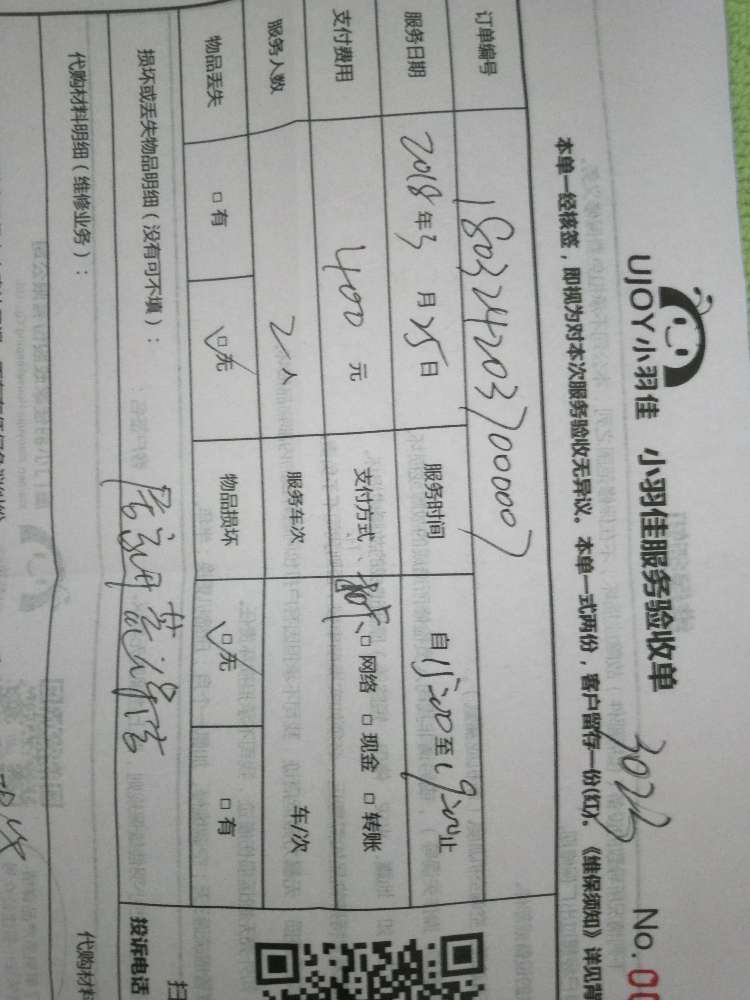 UJOY小羽佳 小羽佳服务验收单 No.
本单一经核签，即视为对本次服务验收无异议。本单一式两份，客户留存一份(红)。《维保须知》详见背
订单编号 180324203700007
服务日期 2018年3月25日 服务时间 自15:00至19:00止
支付费用 400元 支付方式 □网络 □现金 □转账
服务人数 2人 服务车次 车/次
物品丢失 □有 □无 物品损坏 □无 □有
损坏或丢失物品明细（没有可不填）：
投诉电话
代购材料明细（维修业务）：
代购材料
扫